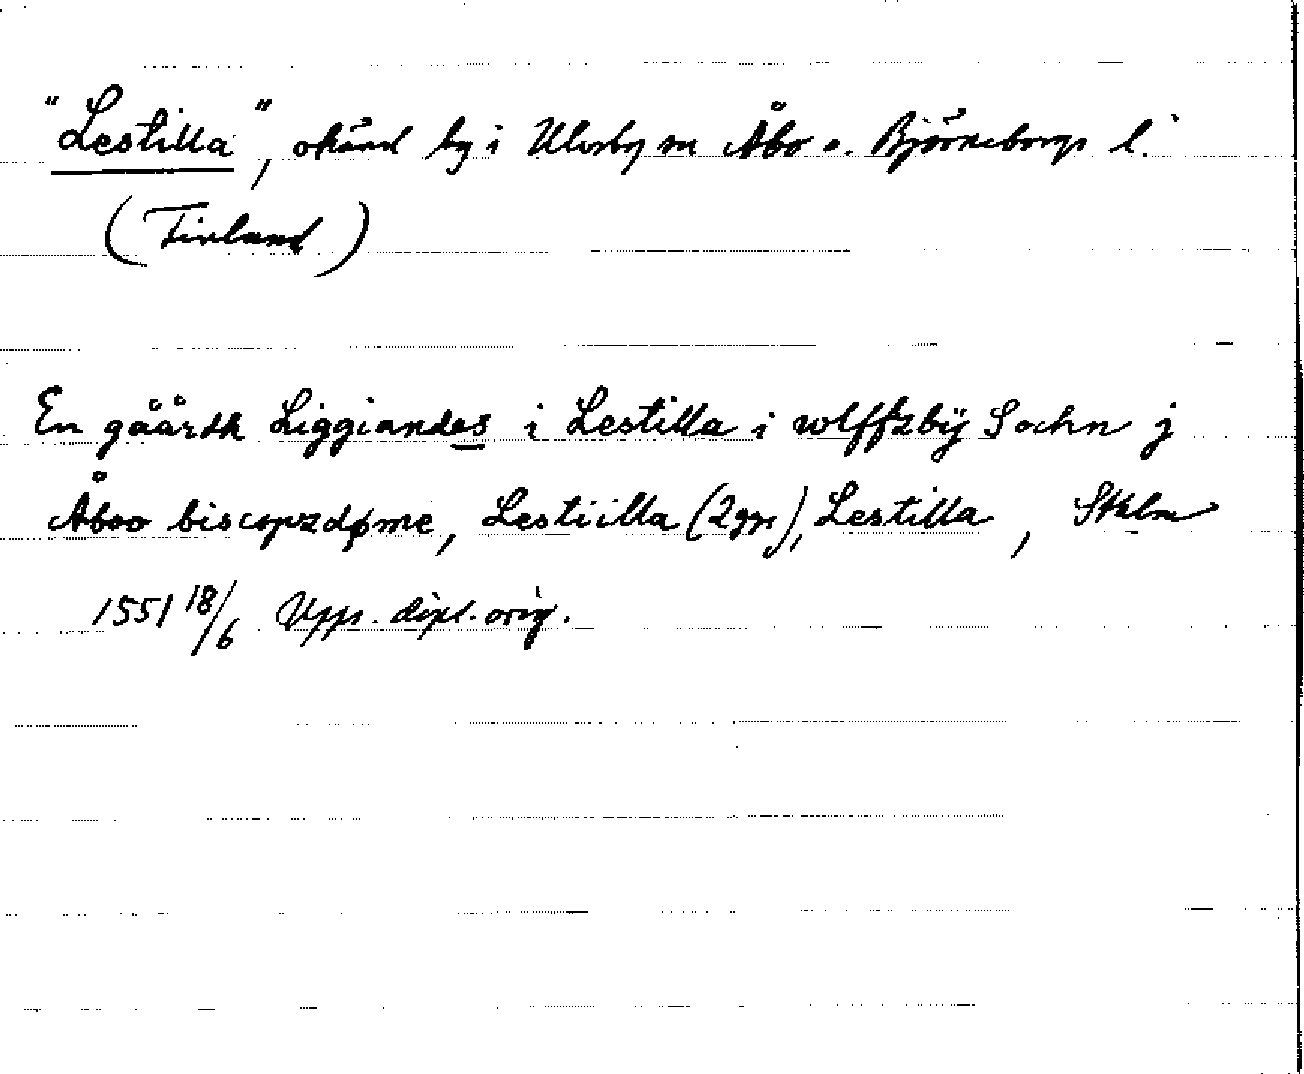 "Lestilla", okänd by i Ulvsby sn Åbo o. Björneborgs l.
(Finland)
En gåårdh Liggiandes i Lestilla i wlffzbÿ Sochn j
Åboo biscopzdøme, Lestiilla (2ggr), Lestilla, Sthlm
1551 18/6 Upps. dipl. orig.